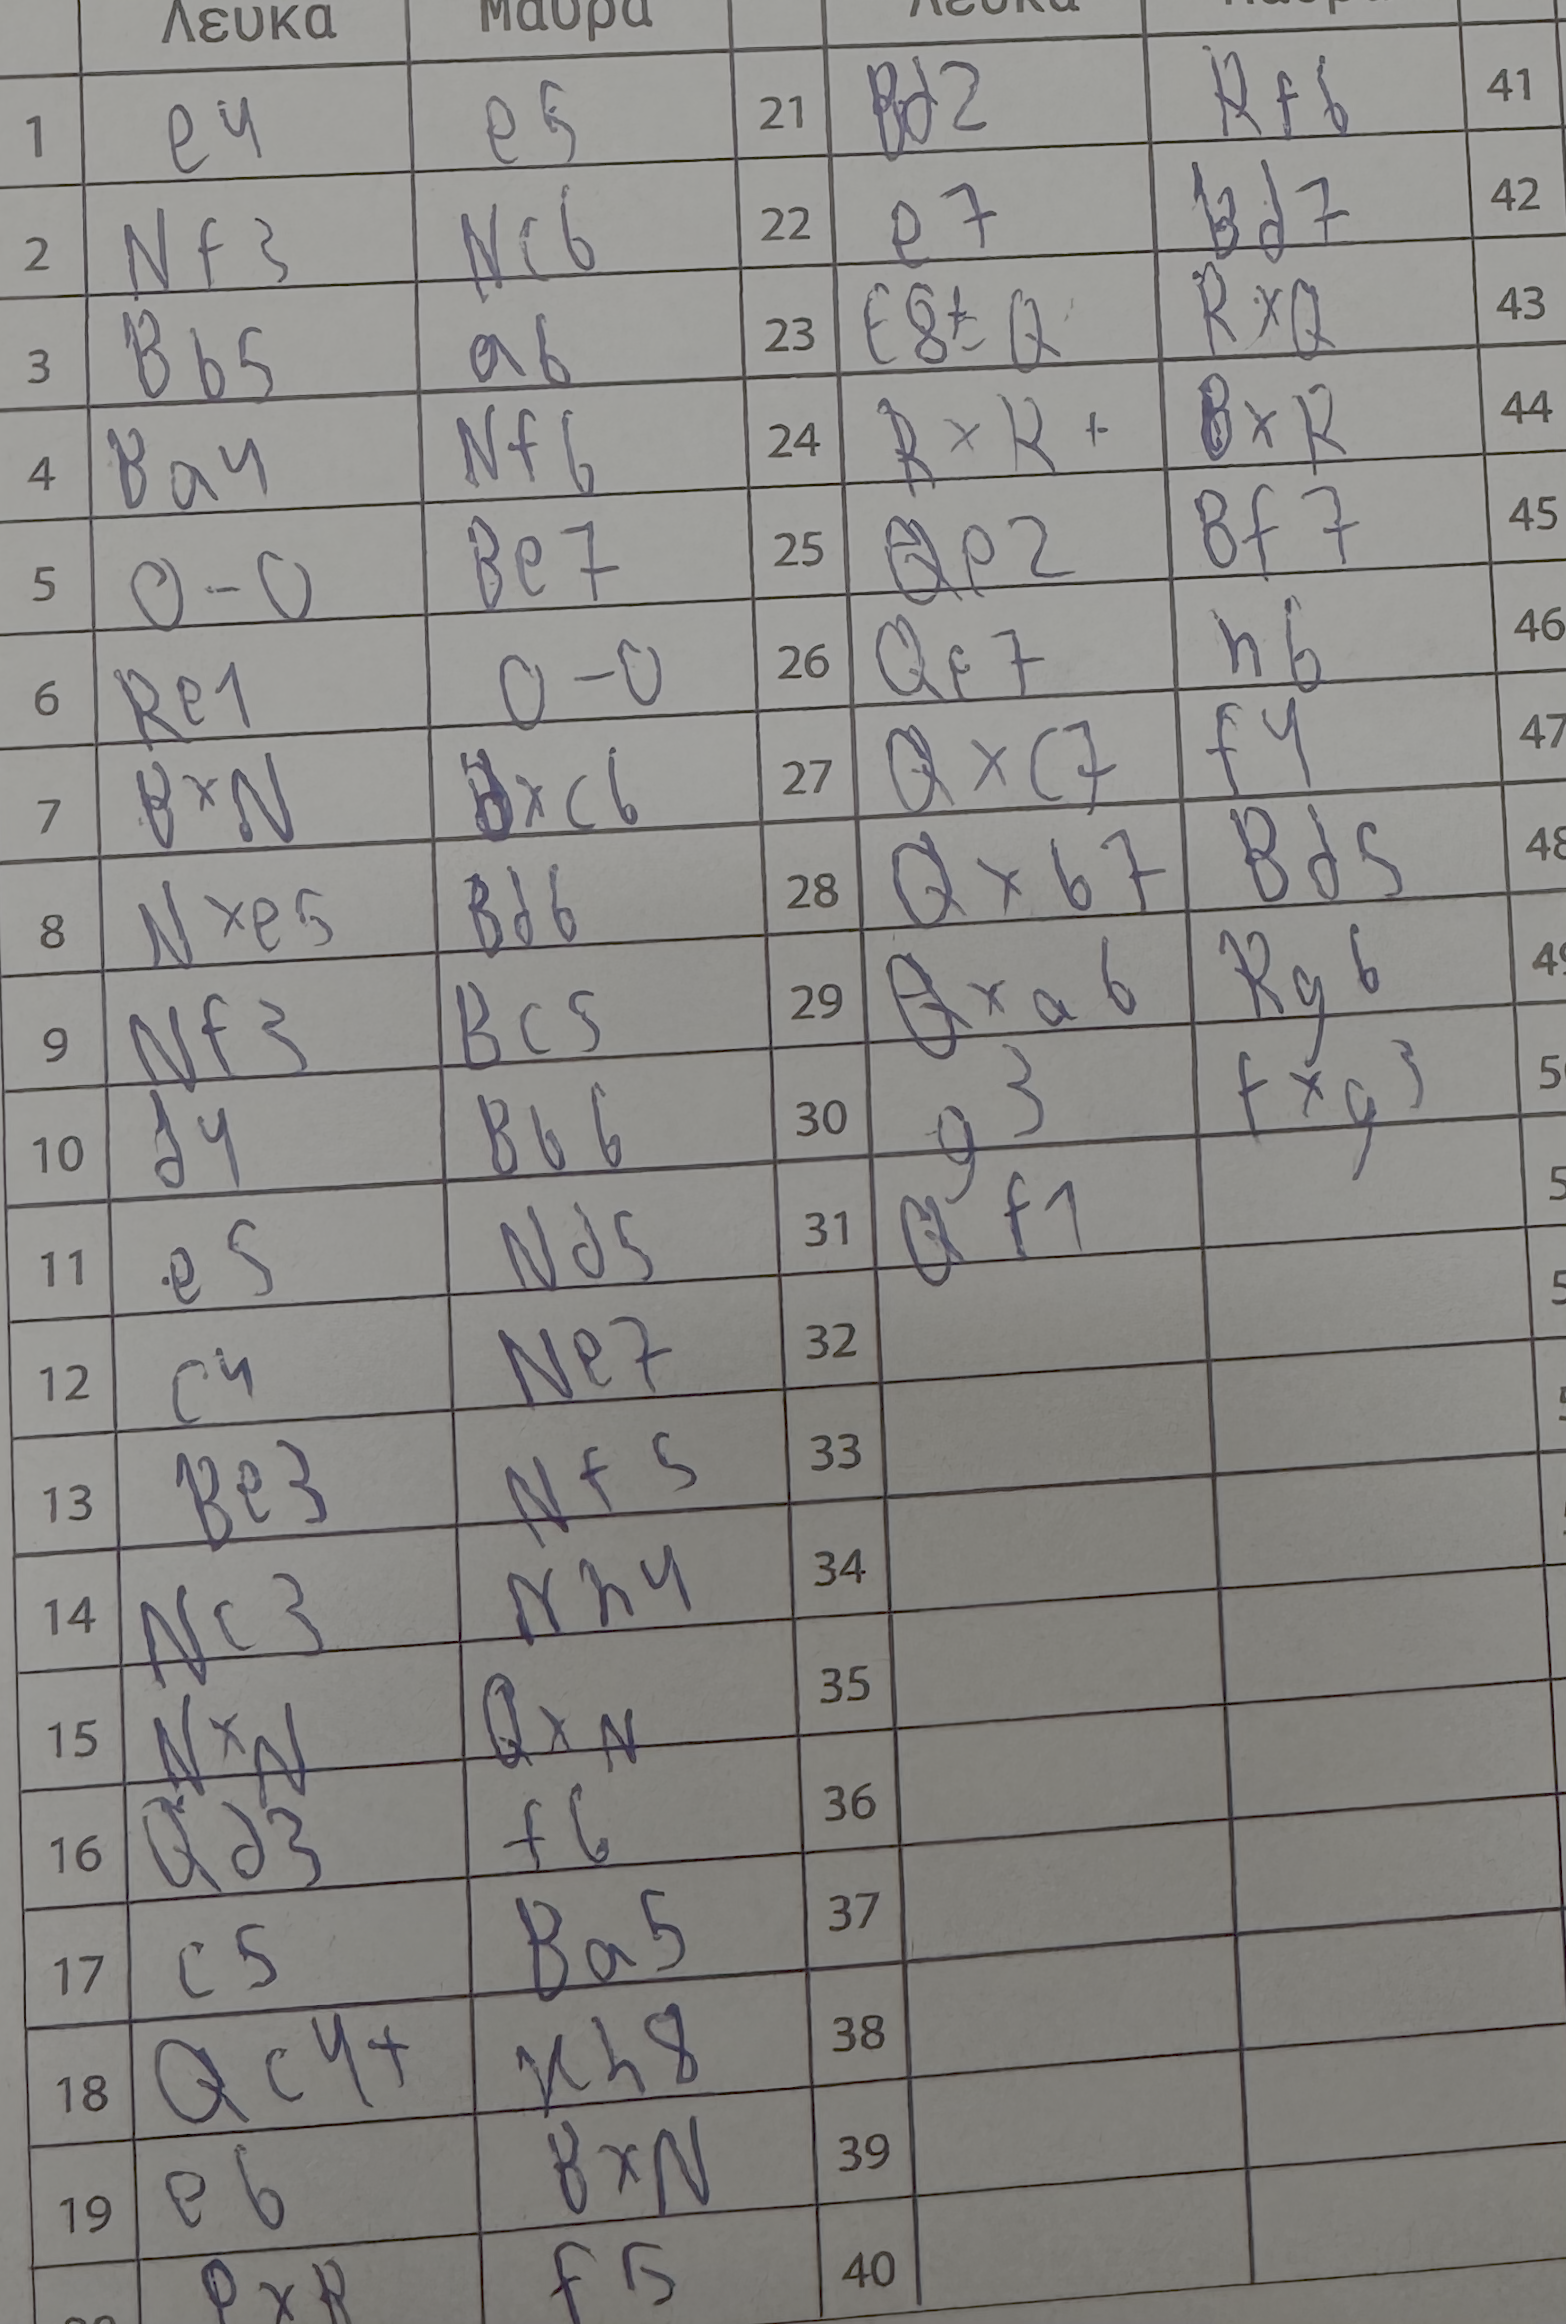 Λευκα Μαυρα Λευκα
1 e4 e5 21 Bd2 Rf6 41
2 Nf3 Nc6 22 e7 Bd7 42
3 Bb5 a6 23 e8= Q RxQ 43
4 Ba4 Nf6 24 RxR+ BxR 44
5 0-0 Be7 25 Qe2 Bf7 45
6 Re1 0-0 26 Qe7 h6 46
7 BxN dxc6 27 Qxc7 f4 47
8 Nxe5 Bd6 28 Qxb7 Bd5 48
9 Nf3 Bc5 29 Qxa6 Rg6
10 d4 Bb6 30 g3 fxg3
11 e5 Nd5 31 Qf1
12 c4 Ne7 32
13 Be3 Nf5 33
14 Nc3 Nh4 34
15 NxN QxN 35
16 Qd3 f6 36
17 c5 Ba5 37
18 Qc4+ Kh8 38
19 e6 BxN 39
f5 40